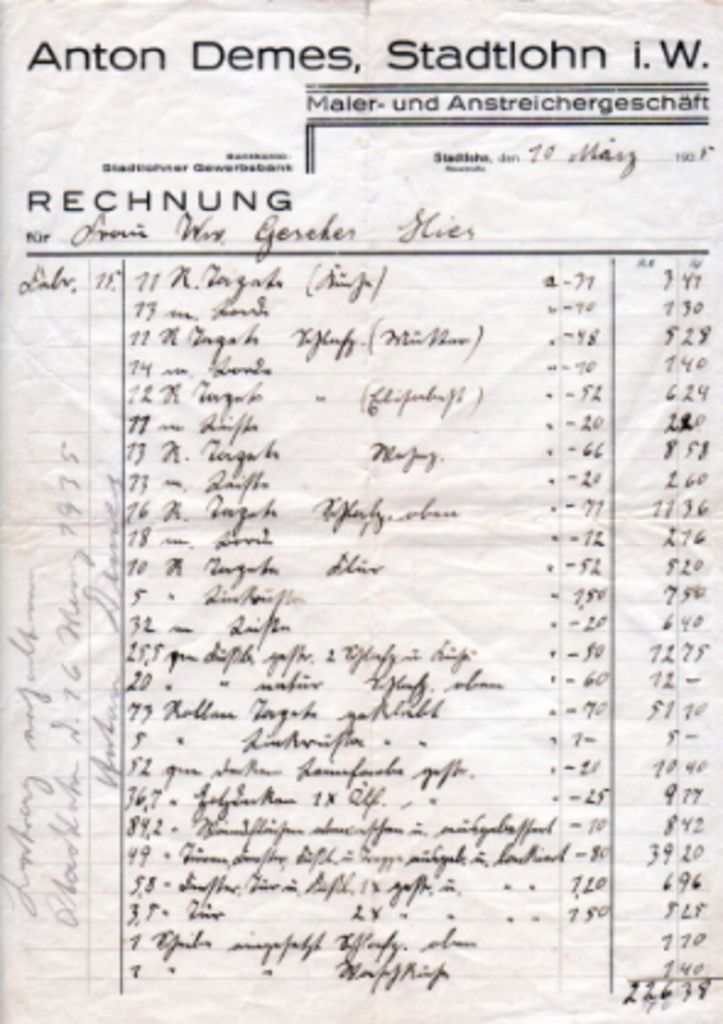 Anton Demes, Stadtlohn i. W.
Maler- und Anstreichergeschäft
Bankkonto:
Stadtlohner Gewerbebank
Stadtlohn, den 10 März 1935
RECHNUNG
für Frau Ww. Gescher Hier
Febr. 15. 11 R. Tapete (Küche) a -31 3 41
13 m. Borde " -10 1 30
11 R Tapete Schlafz. (Mutter) " -48 5 28
14 m. Borde " -10 1 40
12 R Tapete " (Elisabeth) " -52 6 24
11 m Leiste " -20 2 20
13 R. Tapete Wohnz. " -66 8 58
13 m. Leiste " -20 2 60
16 R. Tapete Schlafz. oben " -71 11 36
18 m. Borde " -12 2 16
10 R Tapete Flur " -52 5 20
5 " Linkrusta " 1,50 7 50
32 m Leiste " -20 6 40
25,5 qm Fußb. gestr. 2 Schlafz u Küche " -50 12 75
20 " " natur Schlafz. oben " -60 12 -
73 Rollen Tapete geklebt " -70 51 10
5 " Linkrusta " " " 1- 5 -
52 qm Decken Leimfarbe gestr. " -20 10 40
36,7 " 1 x Ölf. " " -25 9 17
84,2 " Wandflächen abwaschen u. ausgebessert " -10 8 42
49 " Türen, Fenster, Fußl. u Treppe ausgeb. u. lackiert " -80 39 20
5,8 " Fenster, Tür u. Fußl. 1x gestr. u. " " 1,20 6 96
3,5 " Tür 2 x " " " " 1,50 5 25
1 Scheibe eingesetzt Schlafz. oben 1 10
1 " " Waschküche 1 40
226 38
Betrag erhalten
Stadtlohn d. 26 März 1935
Anton Demes